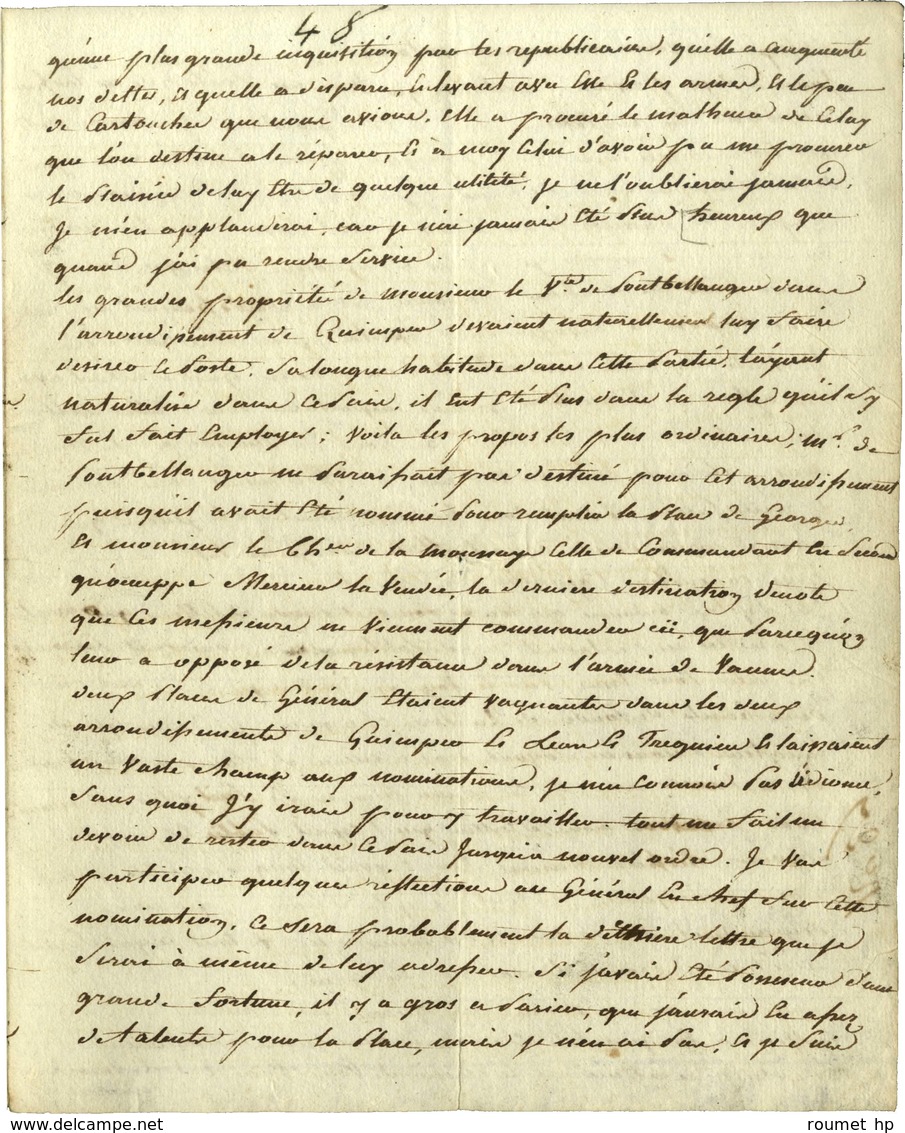 48
qu'une plus grande inquisition par les republicains, quelle a augmenté
nos dettes, et quelle a disparu, enlevant avec elle et les armes, et le peu
de Cartouches que nous avions. Elle a procuré le malheur de Celuy
que l'on destine a le réparer, et a moy Celui d'avoir pu me procurer
le plaisir de luy Etre de quelque utilité, je ne l'oublierai jamais,
Je m'en applaudirai, car je n'ai jamais Eté plus heureux que
quand j'ai pu rendre service.
les grandes propriétés de Monsieur le Vte de Pontbellanger dans
l'arrondissement de Quimper devaient naturellement luy faire
desirer ce poste. Sa longue habitude dans Cette partie, l'ayant
naturalisé dans ce pais, il eut Eté plus dans la regle qu'il s'y
fut fait Employer; voila les propos les plus ordinaires; mr de
pontbellanger ne paraissait pas destiné pour Cet arrondissement
puisqu'il avait Eté nommé pour remplir la place de Georges,
Et monsieur le Cher de la Moussaye Celle de Commandant En second
qu'occuppe Mercier la Vendée, la derniere destination denote
que Ces messieurs ne viennent commander ici, que parcequ'on
leur a opposé de la résistance dans l'armée de Vannes.
deux places de Général Etaient vaquantes dans les deux
arrondissements de Quimper et Leon et Treguier Et laissaient
un vaste champ aux nominations, je n'en connois pas l'idiome,
Sans quoi J'y irais pour y travailler. tout me fait un
devoir de rester dans ce pais Jusqu'a nouvel ordre. Je vais
participer quelques réflections au Général En chef sur Cette
nomination, Ce sera probablement la dernière lettre que je
serai à même de luy adresser. Si j'avais Eté possesseur d'une
grande fortune, il y a gros a parier, que j'aurais Eu assez
de talents pour la place, mais je n'en ai pas, et je suis
roumet hp